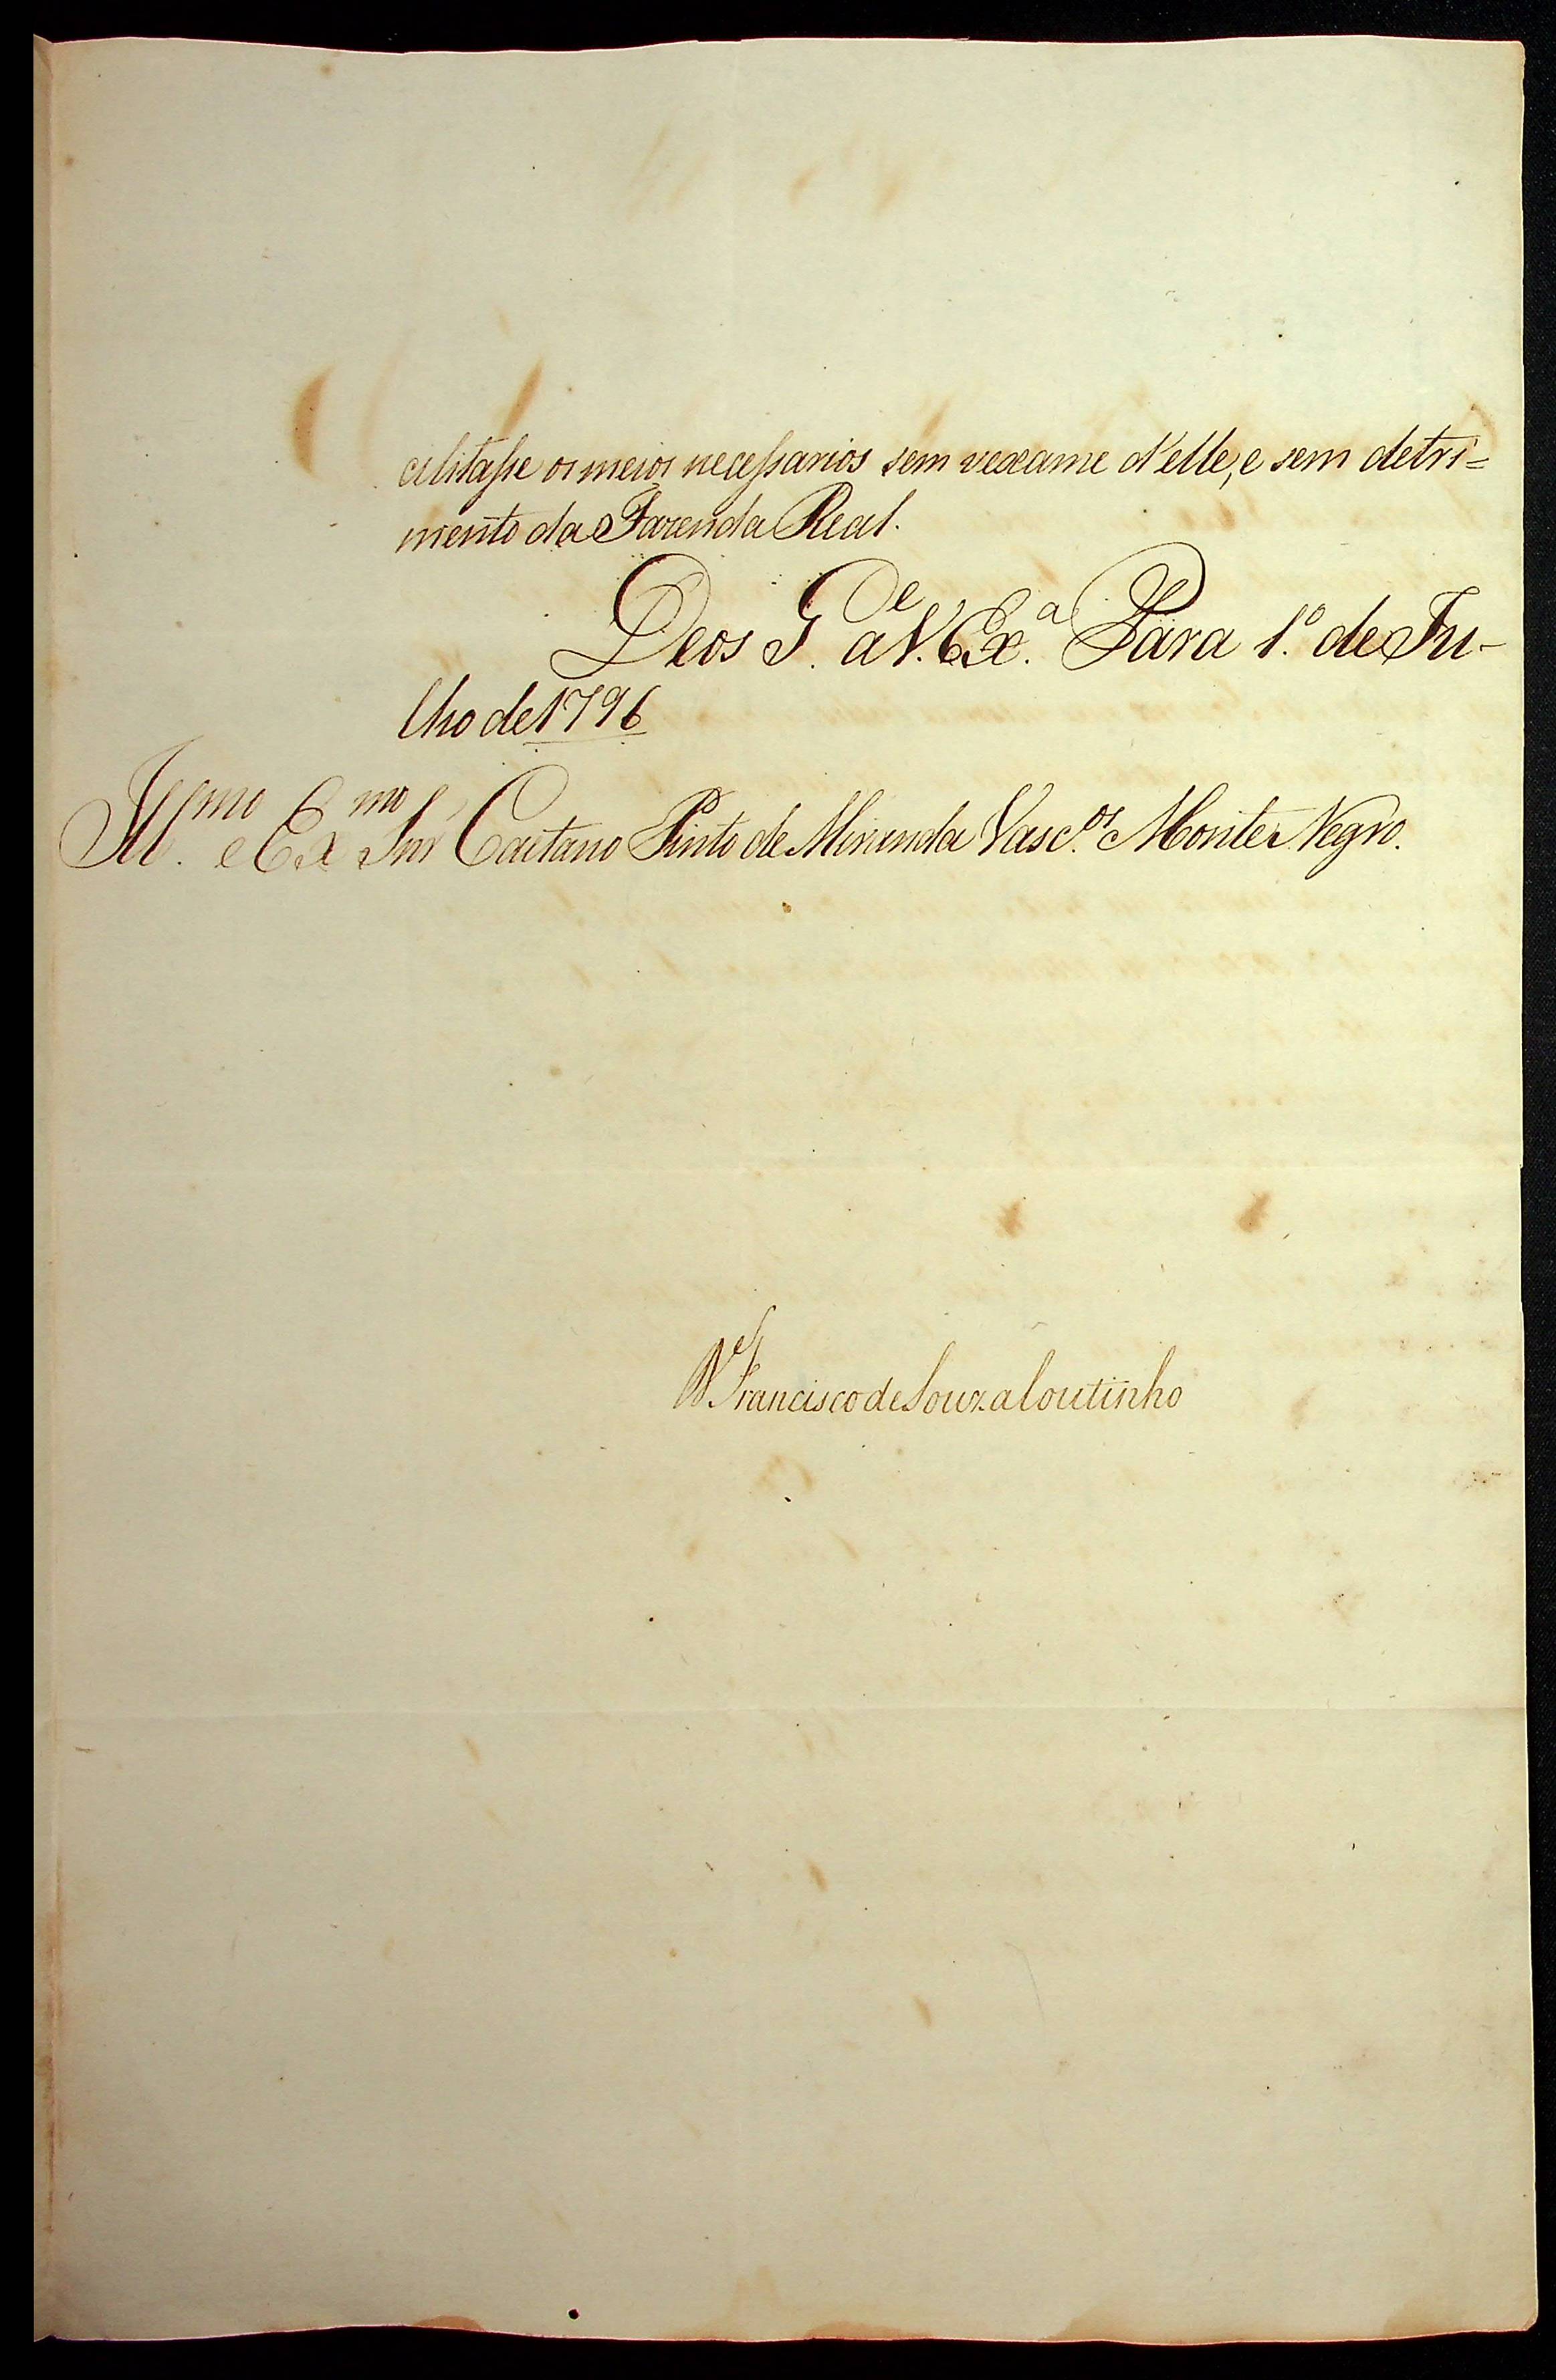 cilitasse os meios necessarios sem vexame d'elle, e sem detri=
mento da Fazenda Real.
Deos G.e a V. Ex.a Pará 1.º de Ju-
lho de 1796
Ill.mo e Ex.mo Snr Caetano Pinto de Miranda Vasc.os Monte Negro.
Francisco de Souza Coutinho